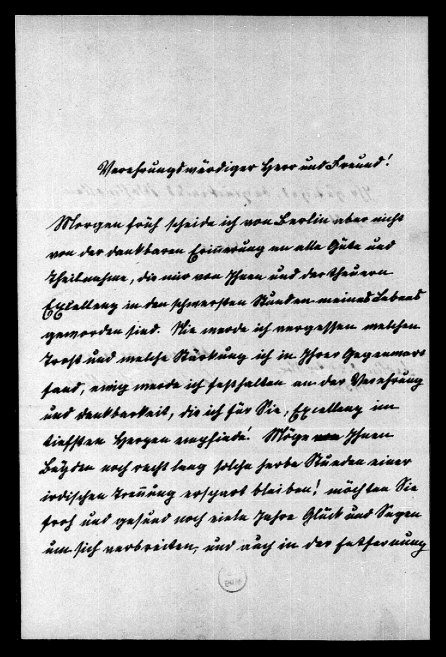 Verehrungswürdiger Herr und Freund!
Morgen früh scheide ich von Berlin aber nicht
von der dankbaren Erinnerung an alle Güte und
Theilnahme, die mir von Ihnen und der theuern
Excellenz in den schwersten Stunden meines Lebens
geworden sind. Nie werde ich vergessen welchen
Trost und welche Stärkung ich in Ihrer Gegenwart
fand, ewig werde ich festhalten an der Verehrung
und Dankbarkeit, die ich für Sie, Excellenz im
tiefsten Herzen empfinde! Möge Ihnen
Beyden noch recht lang solche herbe Stunden einer
irdischen Trennung erspart bleiben! möchten Sie
froh und gesund noch viele Jahre Glück und Segen
um sich verbreiten, und auch in der Entfernung